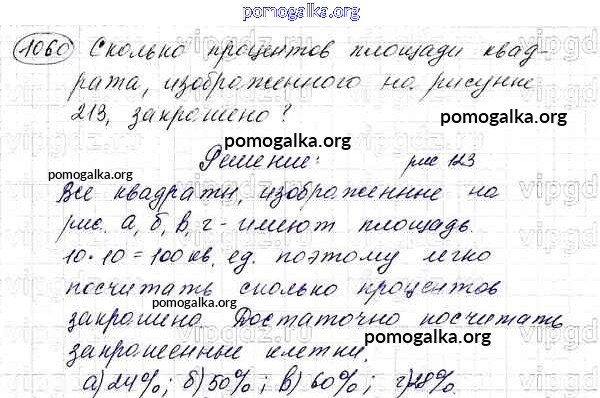 pomogalka.org
1060 Сколько процентов площади квад-
рата, изображенного на рисунке
213, закрашено?
pomogalka.org
pomogalka.org
Решение: рис 123
pomogalka.org
Все квадраты, изображенные на
рис. а, б, в, г - имеют площадь
10·10 = 100 кв. ед. поэтому легко
посчитать сколько процентов
pomogalka.org
закрашено. Достаточно посчитать
закрашенные клетки.
pomogalka.org
а) 24%; б) 50%; в) 60%; г) 28%.
pomogalka.org